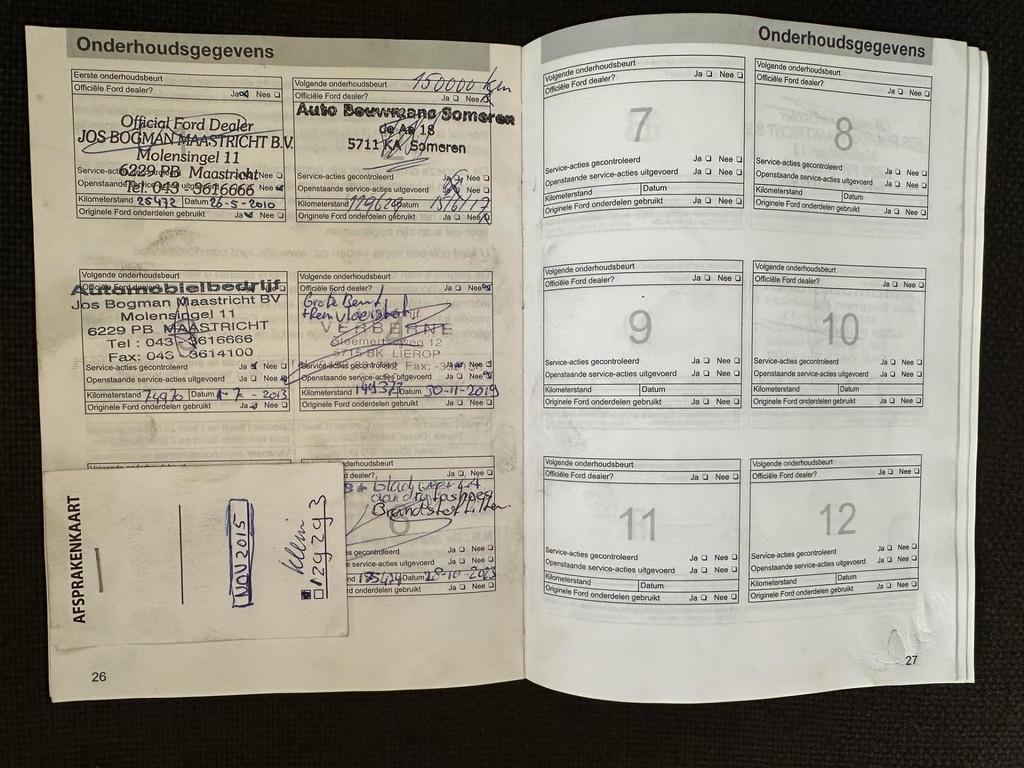 Onderhoudsgegevens
Eerste onderhoudsbeurt
Officiële Ford dealer? Ja Nee
Official Ford Dealer
JOS BOGMAN MAASTRICHT B.V.
Molensingel 11
6229 PB Maastricht
Tel. 043 - 3616666
Kilometerstand 25472 Datum 26-5-2010
Originele Ford onderdelen gebruikt Ja Nee
Volgende onderhoudsbeurt 150000 km
Officiële Ford dealer? Ja Nee
Auto Bouwmans Someren
de Ae 18
5711 KA Someren
Service-acties gecontroleerd Ja Nee
Openstaande service-acties uitgevoerd Ja Nee
Kilometerstand Datum
Originele Ford onderdelen gebruikt Ja Nee
Volgende onderhoudsbeurt
Officiële Ford dealer? Ja Nee
Automobielbedrijf
Jos Bogman Maastricht BV
Molensingel 11
6229 PB MAASTRICHT
Tel : 043 3616666
Fax: 043 3614100
Service-acties gecontroleerd Ja Nee
Openstaande service-acties uitgevoerd Ja Nee
Kilometerstand 74970 Datum 1-7-2013
Originele Ford onderdelen gebruikt Ja Nee
Volgende onderhoudsbeurt
Officiële Ford dealer? Ja Nee
Grote Beurt
Remvloeistof
VERBERNE
12
5715 BK LIEROP
Service-acties gecontroleerd Ja Nee
Openstaande service-acties uitgevoerd Ja Nee
Kilometerstand 149373 Datum 30-11-2019
Originele Ford onderdelen gebruikt Ja Nee
onderhoudsbeurt
dealer? Ja Nee
6
es gecontroleerd Ja Nee
e service-acties uitgevoerd Ja Nee
Datum 28-10-2023
rd onderdelen gebruikt Ja Nee
AFSPRAKENKAART
NOV 2015
Klein
129293
26
Onderhoudsgegevens
Volgende onderhoudsbeurt
Officiële Ford dealer? Ja Nee
7
Service-acties gecontroleerd Ja Nee
Openstaande service-acties uitgevoerd Ja Nee
Kilometerstand Datum
Originele Ford onderdelen gebruikt Ja Nee
Volgende onderhoudsbeurt
Officiële Ford dealer? Ja Nee
8
Service-acties gecontroleerd Ja Nee
Openstaande service-acties uitgevoerd Ja Nee
Kilometerstand Datum
Originele Ford onderdelen gebruikt Ja Nee
Volgende onderhoudsbeurt
Officiële Ford dealer? Ja Nee
9
Service-acties gecontroleerd Ja Nee
Openstaande service-acties uitgevoerd Ja Nee
Kilometerstand Datum
Originele Ford onderdelen gebruikt Ja Nee
Volgende onderhoudsbeurt
Officiële Ford dealer? Ja Nee
10
Service-acties gecontroleerd Ja Nee
Openstaande service-acties uitgevoerd Ja Nee
Kilometerstand Datum
Originele Ford onderdelen gebruikt Ja Nee
Volgende onderhoudsbeurt
Officiële Ford dealer? Ja Nee
11
Service-acties gecontroleerd Ja Nee
Openstaande service-acties uitgevoerd Ja Nee
Kilometerstand Datum
Originele Ford onderdelen gebruikt Ja Nee
Volgende onderhoudsbeurt
Officiële Ford dealer? Ja Nee
12
Service-acties gecontroleerd Ja Nee
Openstaande service-acties uitgevoerd Ja Nee
Kilometerstand Datum
Originele Ford onderdelen gebruikt Ja Nee
27